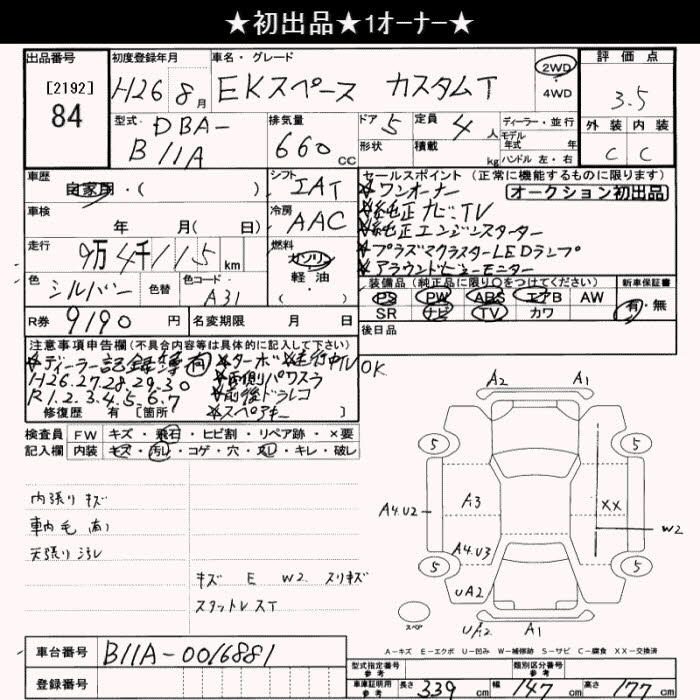 ★初出品★1オーナー★
出品番号 初度登録年月 車名・グレード 評価点
[2192] 84 H26 8月 EKスペース カスタムT 2WD・4WD 3.5
外装 内装
C C
型式 DBA-B11A 排気量 660cc ドア 5 定員 4人 ディーラー・並行
形状 積載 kg モデル年式 年式
ハンドル 左・右
車歴 自家用・( ) シフト IAT セールスポイント(正常に機能するものに限ります)
☆ワンオーナー オークション初出品
車検 年 月(日) 冷房 AAC ☆純正ナビ・TV
☆純正エンジンスターター
走行 9万4千115km 燃料 ガソリン 軽油 ( ) ☆プラズマクラスターLEDランプ
☆アラウンドビューモニター
色 シルバー 色替 色コード A31 装備品(純正品に限り○をつけてください) 新車保証書
PS PW ABS エアB AW 有・無
SR ナビ TV カワ
R券 9190円 名変期限 月 日 後日品
注意事項申告欄(不具合内容等は具体的に記入して下さい) OK
☆ディーラー記録簿有 ☆ターボ ☆走行中TV
H26.27.28.29.30 ☆両側パワスラ
R1.2.3.4.5.6.7 ☆前後ドラレコ
修復歴 有[箇所 ☆スペアキー ]
検査員記入欄 FW キズ・飛石・ヒビ割・リペア跡・×要
内装 キズ・汚レ・コゲ・穴・スレ・キレ・破レ
内張りキズ
車内毛有
天張り汚レ
キズ E W2 スリキズ
スタットレスT
A2 A1
5 5
A4.U2 A3 XX W2
A4.U3
5 5
UA2
スペア UA2 A1
A-キズ E-エクボ U-凹み W-補修跡 S-サビ C-腐食 XX-交換済
車台番号 B11A-0016881
登録番号
型式指定番号 参考 類別区分番号 参考
車庫証明用 参考 長さ 339cm 幅 147cm 高さ 177cm